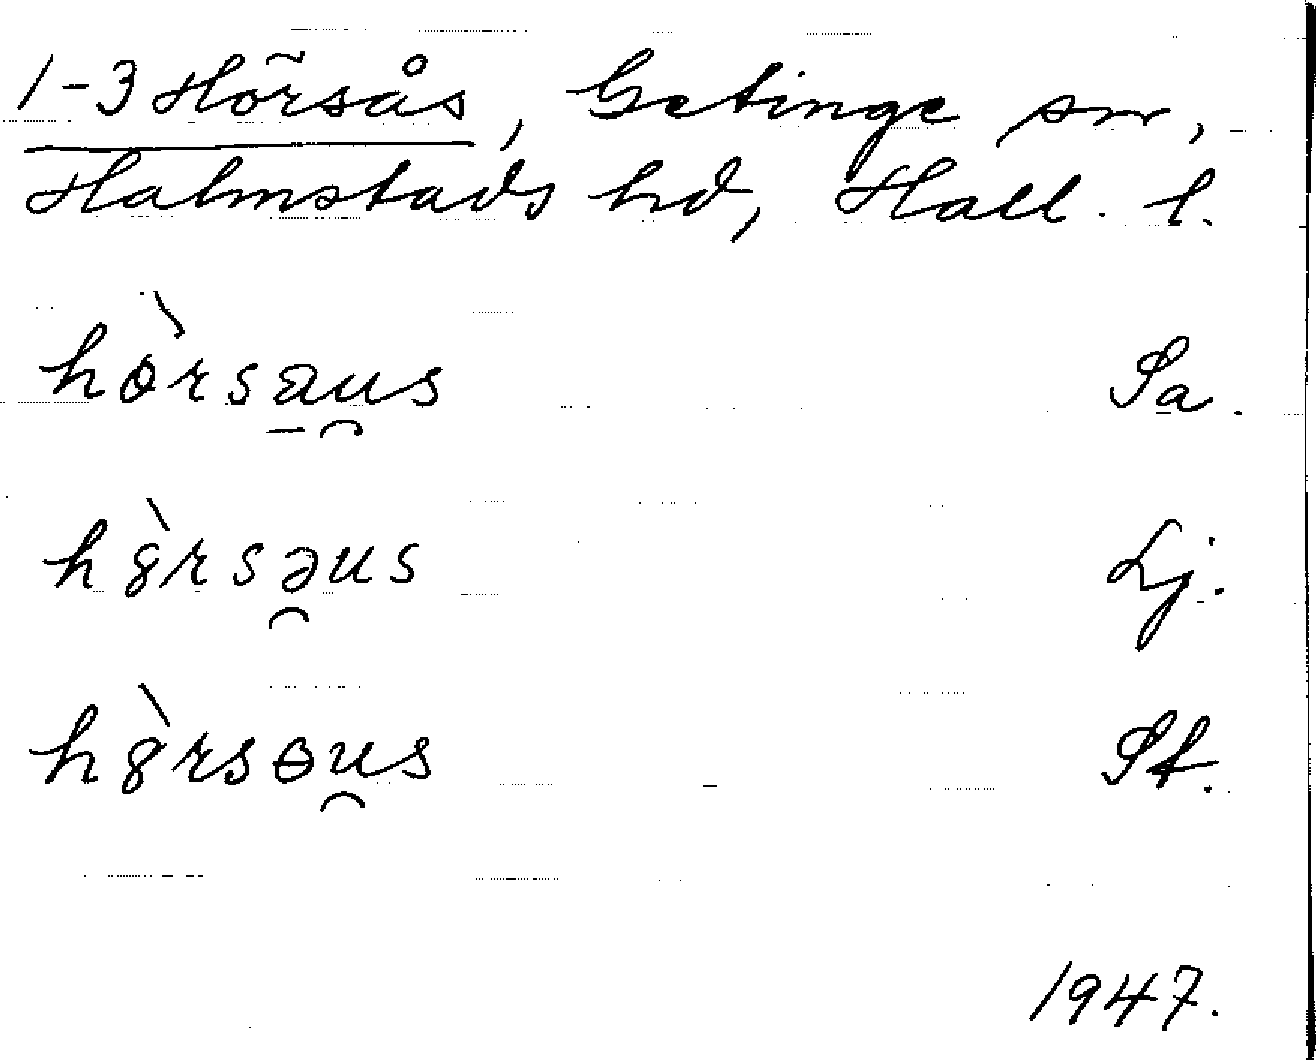 1-3 Hörsås, Getinge sn,
Halmstads hd, Hall. l.
hòrsa̱u̯s Sa.
h8̀rsə̯us Lj.
h8̀rsɵu̯s St.
1947.